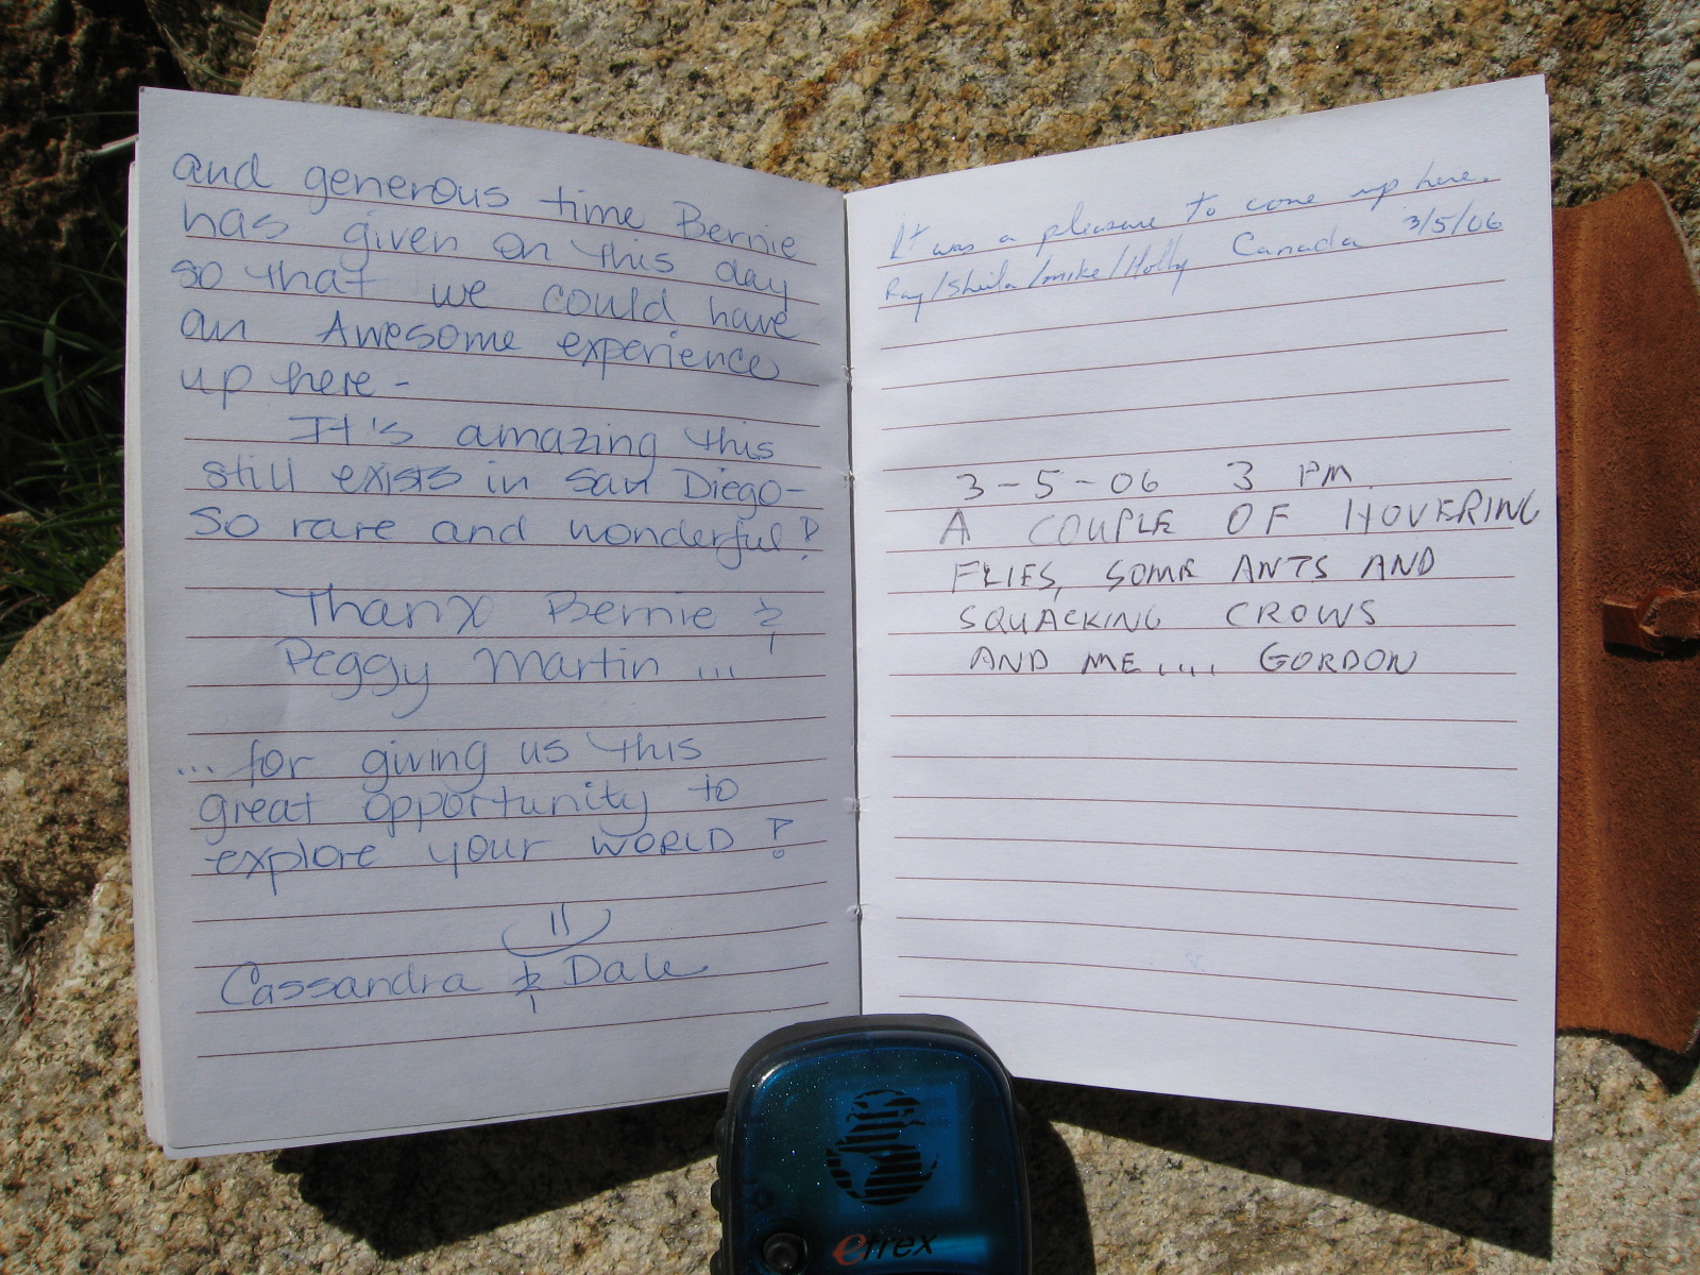 and generous time Bernie
has given on this day
so that we could have
an Awesome experience
up here -
It's amazing this
still exists in San Diego-
so rare and wonderful!
Thanx Bernie &
Peggy Martin ...
... for giving us this
great opportunity to
explore your WORLD!
Cassandra & Dale
It was a pleasure to come up here.
Ray/Sheila/mike/Holly Canada 3/5/06
3-5-06 3 PM.
A COUPLE OF HOVERING
FLIES, SOME ANTS AND
SQUACKING CROWS
AND ME.... GORDON
etrex